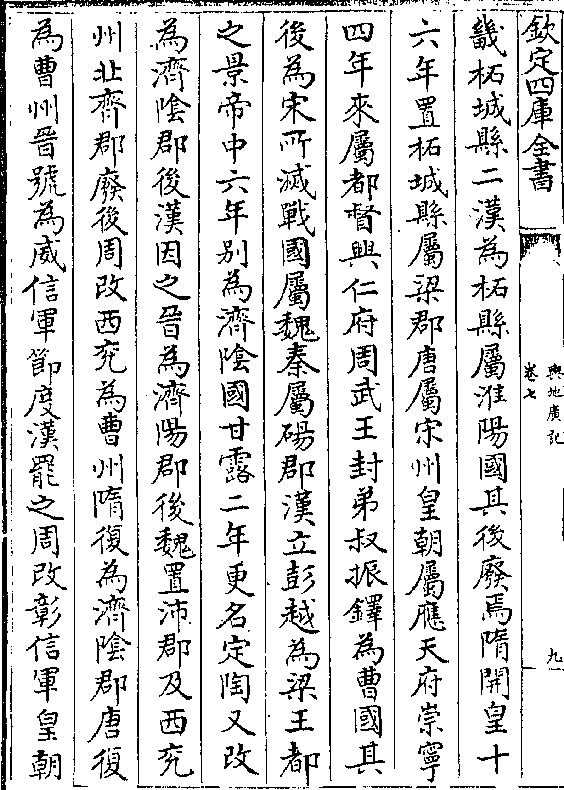 欽定四庫全書
輿地廣記
卷七
九
畿柘城縣二漢為柘縣屬淮陽國其後廢焉隋開皇十
六年置柘城縣屬梁郡唐屬宋州皇朝屬應天府崇寧
四年來屬都督興仁府周武王封弟叔振鐸為曹國其
後為宋所滅戰國屬魏秦屬碭郡漢立彭越為梁王都
之景帝中六年别為濟陰國甘露二年更名定陶又改
為濟陰郡後漢因之晉為濟陽郡後魏置沛郡及西兖
州北齊郡廢後周改西兖為曹州隋復為濟陰郡唐復
為曹州晉號為威信軍節度漢罷之周改彰信軍皇朝